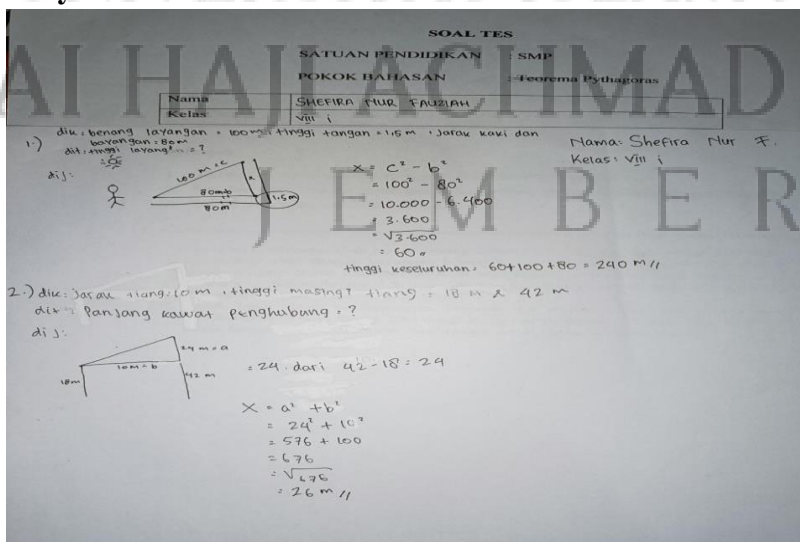 SOAL TES
SATUAN PENDIDIKAN : SMP
POKOK BAHASAN : Teorema Pythagoras
AI HAJI ACHMAD
Nama SHEFIRA NUR FAUZIAH
Kelas VIII i
1.) dik: benang layangan = 100 m, tinggi tangan = 1,5 m, Jarak kaki dan
bayangan = 80 m
dit: tinggi layang² = ?
Nama: Shefira Nur F.
Kelas: VIII i
dij:
100 m = c
80 m = b
80 m
1.5 m
x = c² - b²
= 100² - 80²
= 10.000 - 6.400
= 3.600
= √3.600
= 60
tinggi keseluruhan = 60+100+80 = 240 m //
JEMBER
2.) dik: Jarak tiang: 10 m, tinggi masing² tiang = 18 m & 42 m
dit: Panjang kawat penghubung = ?
dij:
24 m = a
10 m = b
18 m
42 m
= 24 dari 42 - 18 = 24
X = a² + b²
= 24² + 10²
= 576 + 100
= 676
= √676
= 26 m //